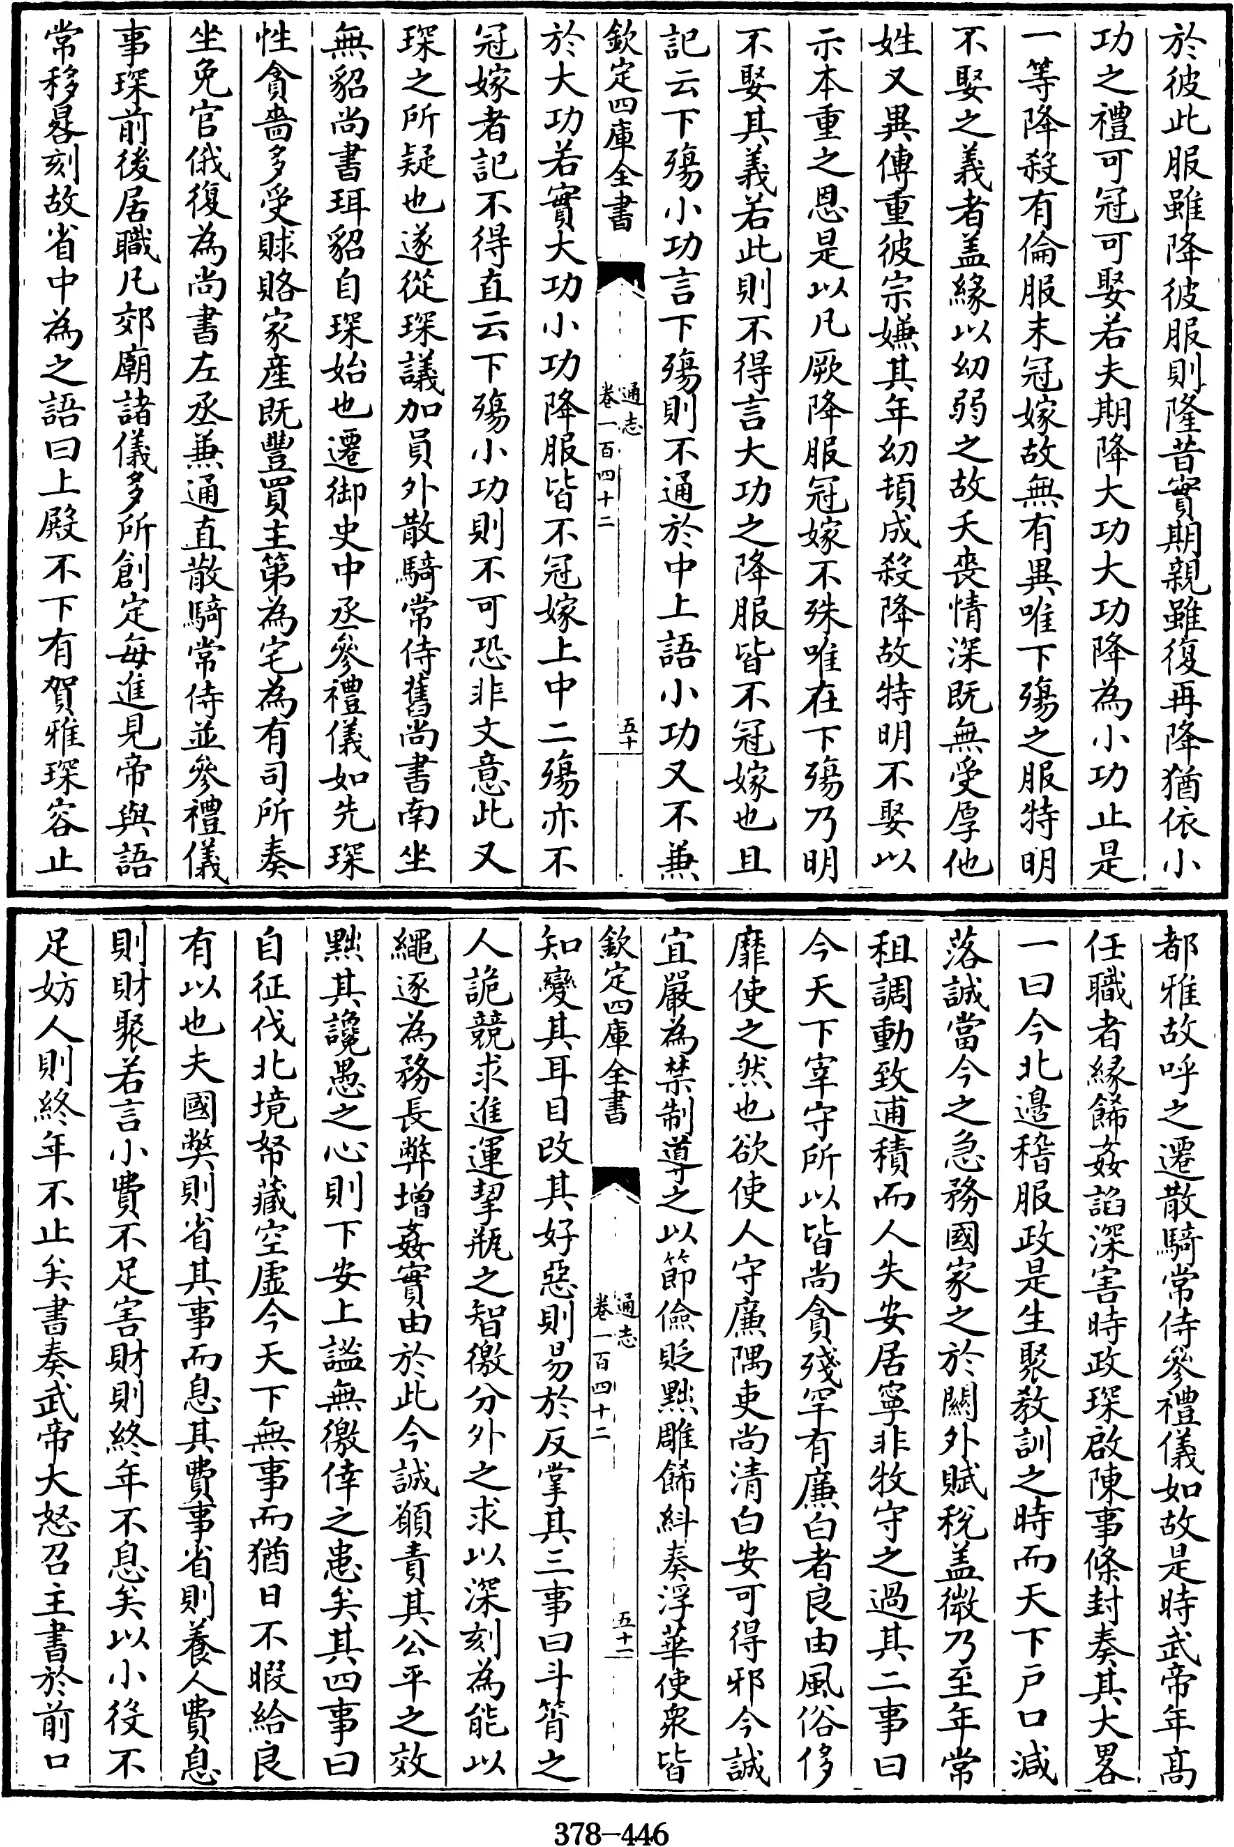 於彼此服雖降彼服則隆昔實期親雖復再降猶依小
功之禮可冠可娶若夫期降大功大功降為小功止是
一等降殺有倫服末冠嫁故無有異唯下殤之服特明
不娶之義者盖緣以幼弱之故夭喪情深既無受厚他
姓又異傳重彼宗嫌其年幼頓成殺降故特明不娶以
示本重之恩是以凡厥降服冠嫁不殊唯在下殤乃明
不娶其義若此則不得言大功之降服皆不冠嫁也且
記云下殤小功言下殤則不通於中上語小功又不兼
欽定四庫全書
通志
卷一百四十二
五十
於大功若實大功小功降服皆不冠嫁上中二殤亦不
冠嫁者記不得直云下殤小功則不可恐非文意此又
琛之所疑也遂從琛議加員外散騎常侍舊尚書南坐
無貂尚書珥貂自琛始也遷御史中丞參禮儀如先琛
性貪嗇多受賕賂家産既豐買主第為宅為有司所奏
坐免官俄復為尚書左丞兼通直散騎常侍並參禮儀
事琛前後居職凡郊廟諸儀多所創定每進見帝與語
常移晷刻故省中為之語曰上殿不下有賀雅琛容止
都雅故呼之遷散騎常侍參禮儀如故是時武帝年髙
任職者緣飾姦諂深害時政琛啟陳事條封奏其大畧
一曰今北邊稽服政是生聚教訓之時而天下戶口減
落誠當今之急務國家之於關外賦稅盖微乃至年常
租調動致逋積而人失安居寧非牧守之過其二事曰
今天下宰守所以皆尚貪殘罕有廉白者良由風俗侈
靡使之然也欲使人守廉隅吏尚清白安可得邪今誠
宜嚴為禁制導之以節儉貶黜雕飾糾奏浮華使衆皆
欽定四庫全書
通志
卷一百四十二
五十一
知變其耳目改其好惡則易於反掌其三事曰斗筲之
人詭競求進運挈瓶之智徼分外之求以深刻為能以
繩逐為務長弊增姦實由於此今誠願責其公平之效
黜其讒愚之心則下安上謐無徼倖之患矣其四事曰
自征伐北境帑藏空虛今天下無事而猶日不暇給良
有以也夫國弊則省其事而息其費事省則養人費息
則財聚若言小費不足害財則終年不息矣以小役不
足妨人則終年不止矣書奏武帝大怒召主書於前口
378-446